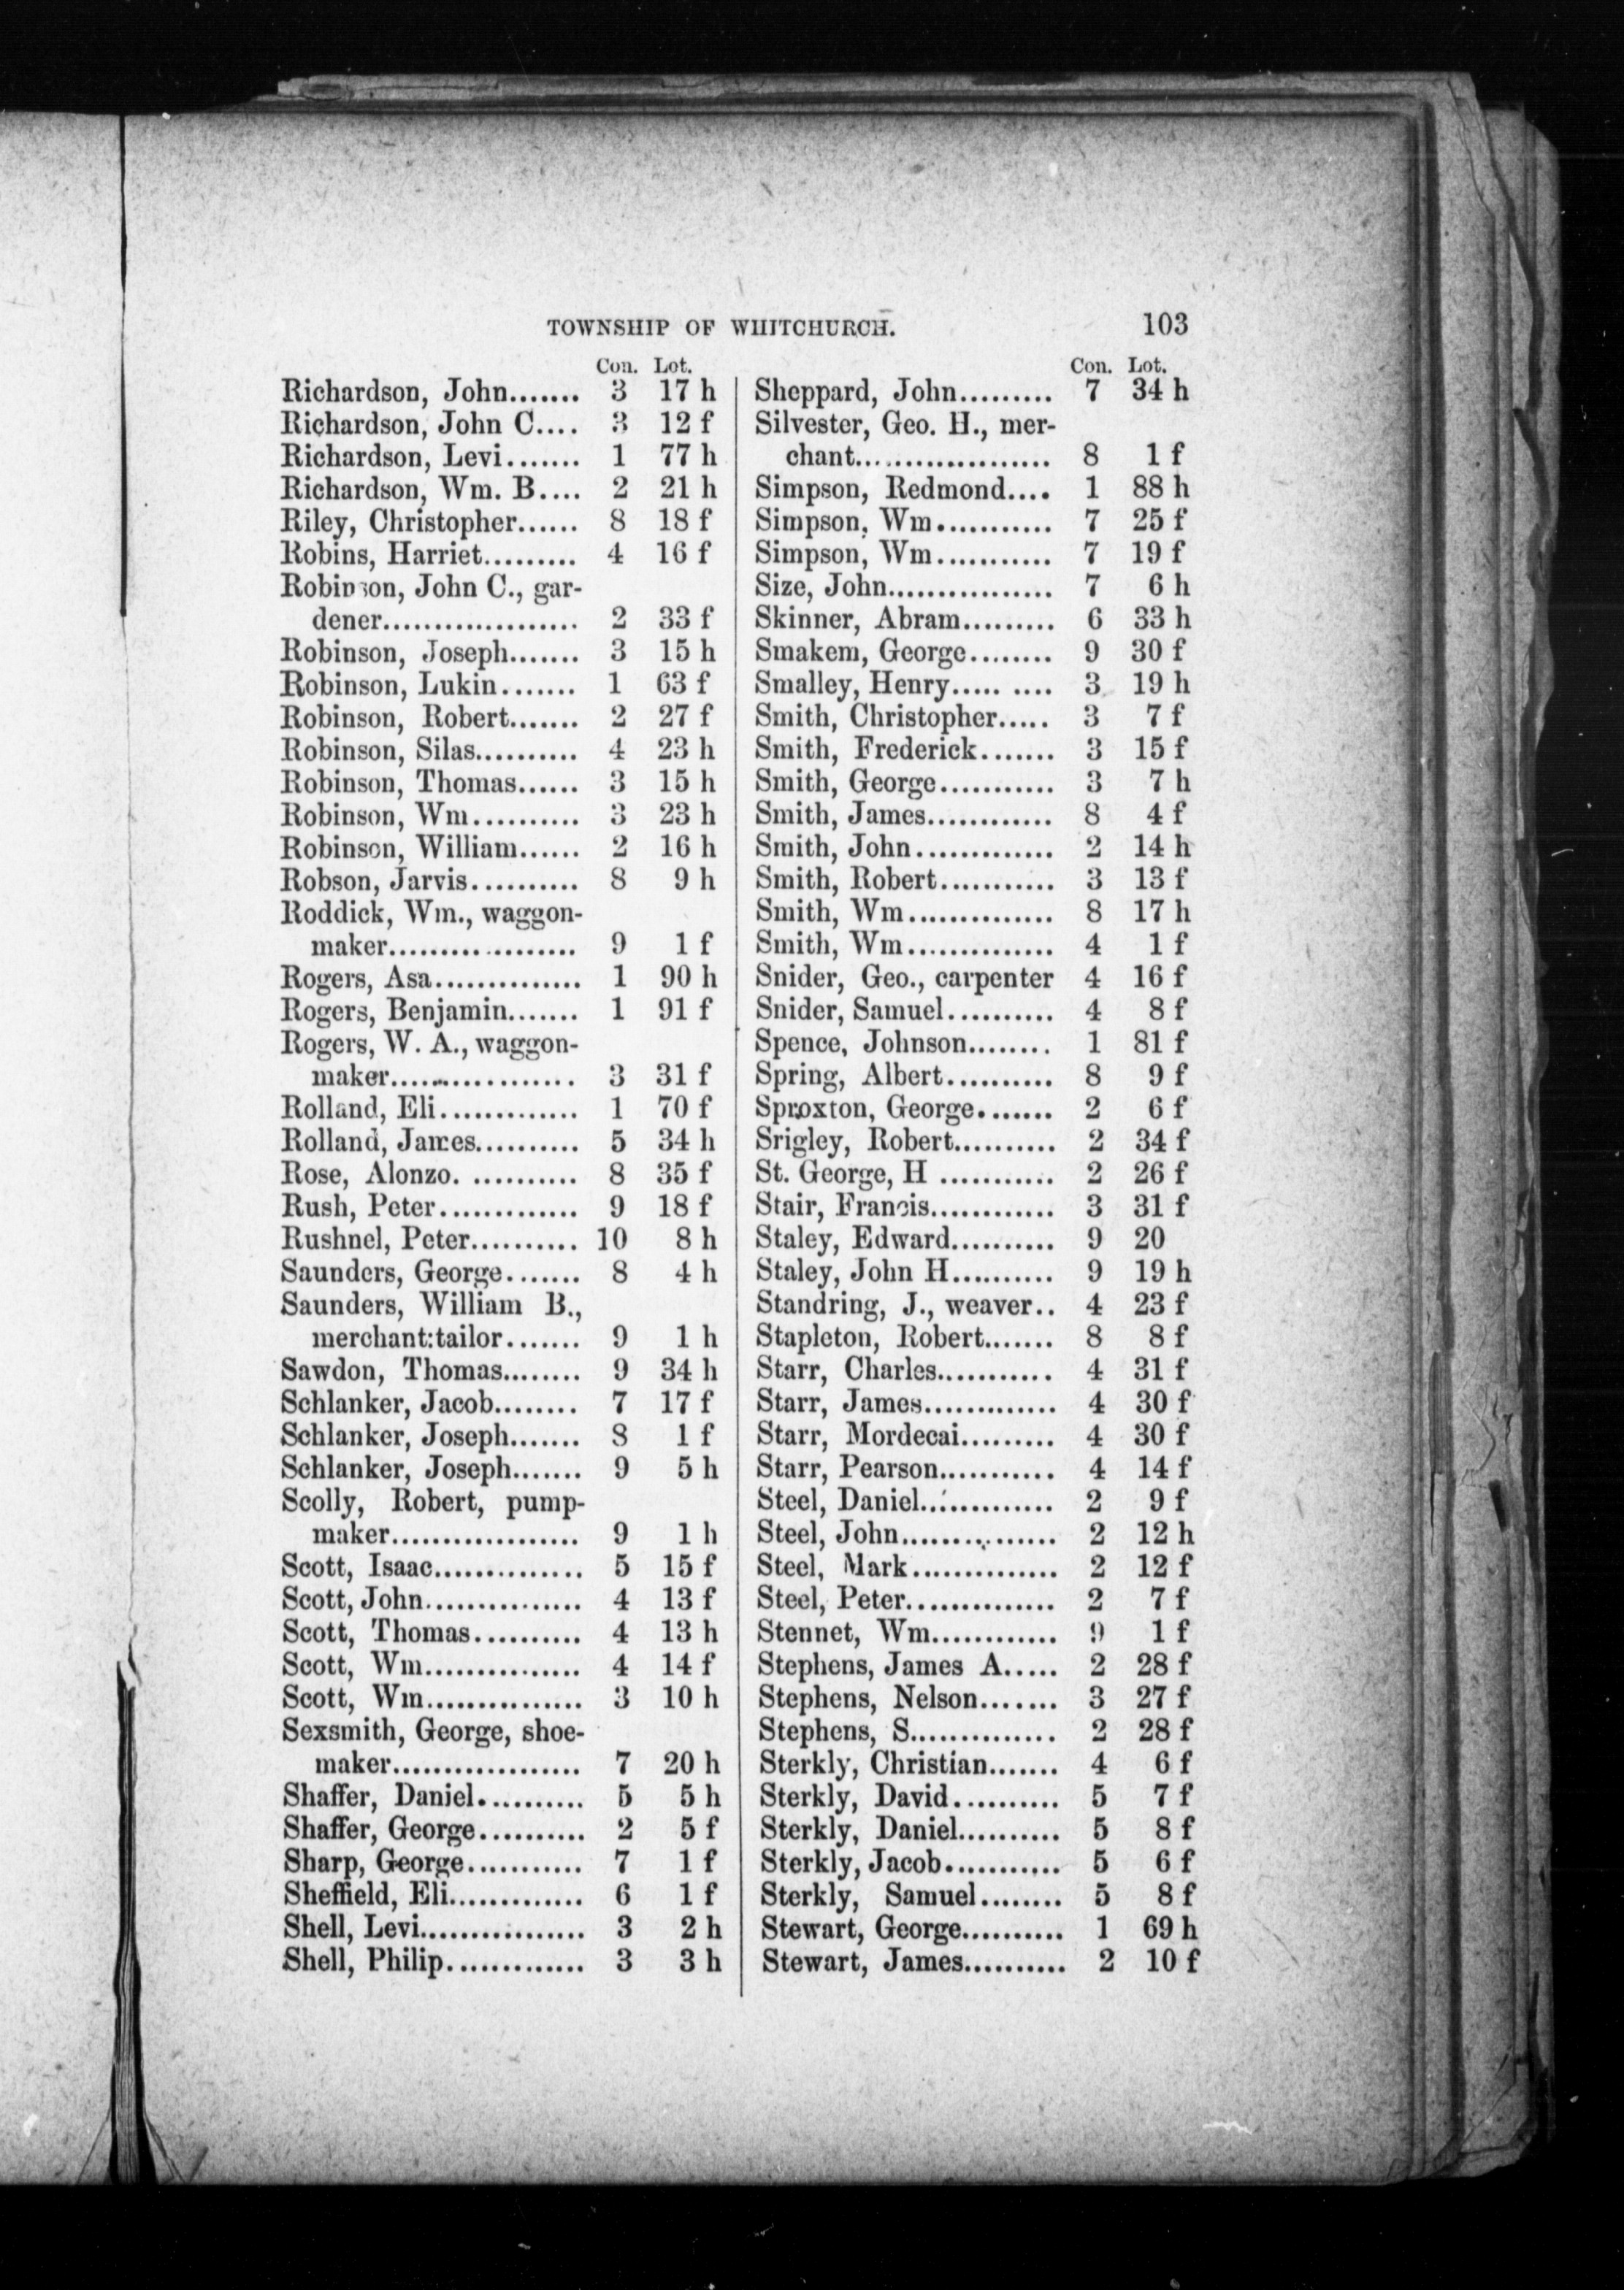 TOWNSHIP OF WHITCHURCH. 103
Con. Lot.
Richardson, John....... 3 17 h
Richardson, John C.... 3 12 f
Richardson, Levi....... 1 77 h
Richardson, Wm. B.... 2 21 h
Riley, Christopher...... 8 18 f
Robins, Harriet......... 4 16 f
Robinson, John C., gar-
dener................... 2 33 f
Robinson, Joseph....... 3 15 h
Robinson, Lukin....... 1 63 f
Robinson, Robert....... 2 27 f
Robinson, Silas.......... 4 23 h
Robinson, Thomas...... 3 15 h
Robinson, Wm.......... 3 23 h
Robinson, William...... 2 16 h
Robson, Jarvis.......... 8 9 h
Roddick, Wm., waggon-
maker.................. 9 1 f
Rogers, Asa.............. 1 90 h
Rogers, Benjamin....... 1 91 f
Rogers, W. A., waggon-
maker.................. 3 31 f
Rolland, Eli............. 1 70 f
Rolland, James.......... 5 34 h
Rose, Alonzo. .......... 8 35 f
Rush, Peter............. 9 18 f
Rushnel, Peter.......... 10 8 h
Saunders, George....... 8 4 h
Saunders, William B.,
merchant:tailor....... 9 1 h
Sawdon, Thomas........ 9 34 h
Schlanker, Jacob........ 7 17 f
Schlanker, Joseph....... 8 1 f
Schlanker, Joseph....... 9 5 h
Scolly, Robert, pump-
maker................... 9 1 h
Scott, Isaac.............. 5 15 f
Scott, John............... 4 13 f
Scott, Thomas.......... 4 13 h
Scott, Wm............... 4 14 f
Scott, Wm............... 3 10 h
Sexsmith, George, shoe-
maker................... 7 20 h
Shaffer, Daniel........... 5 5 h
Shaffer, George.......... 2 5 f
Sharp, George........... 7 1 f
Sheffield, Eli............. 6 1 f
Shell, Levi................ 3 2 h
Shell, Philip............. 3 3 h
Con. Lot.
Sheppard, John......... 7 34 h
Silvester, Geo. H., mer-
chant................... 8 1 f
Simpson, Redmond.... 1 88 h
Simpson, Wm........... 7 25 f
Simpson, Wm........... 7 19 f
Size, John................ 7 6 h
Skinner, Abram......... 6 33 h
Smakem, George........ 9 30 f
Smalley, Henry..... .... 3 19 h
Smith, Christopher..... 3 7 f
Smith, Frederick....... 3 15 f
Smith, George........... 3 7 h
Smith, James............ 8 4 f
Smith, John............. 2 14 h
Smith, Robert........... 3 13 f
Smith, Wm.............. 8 17 h
Smith, Wm.............. 4 1 f
Snider, Geo., carpenter 4 16 f
Snider, Samuel.......... 4 8 f
Spence, Johnson........ 1 81 f
Spring, Albert.......... 8 9 f
Sproxton, George....... 2 6 f
Srigley, Robert.......... 2 34 f
St. George, H ........... 2 26 f
Stair, Francis............ 3 31 f
Staley, Edward.......... 9 20
Staley, John H.......... 9 19 h
Standring, J., weaver.. 4 23 f
Stapleton, Robert....... 8 8 f
Starr, Charles........... 4 31 f
Starr, James............. 4 30 f
Starr, Mordecai......... 4 30 f
Starr, Pearson........... 4 14 f
Steel, Daniel............. 2 9 f
Steel, John............... 2 12 h
Steel, Mark.............. 2 12 f
Steel, Peter.............. 2 7 f
Stennet, Wm............ 9 1 f
Stephens, James A..... 2 28 f
Stephens, Nelson....... 3 27 f
Stephens, S.............. 2 28 f
Sterkly, Christian....... 4 6 f
Sterkly, David........... 5 7 f
Sterkly, Daniel.......... 5 8 f
Sterkly, Jacob........... 5 6 f
Sterkly, Samuel........ 5 8 f
Stewart, George.......... 1 69 h
Stewart, James.......... 2 10 f